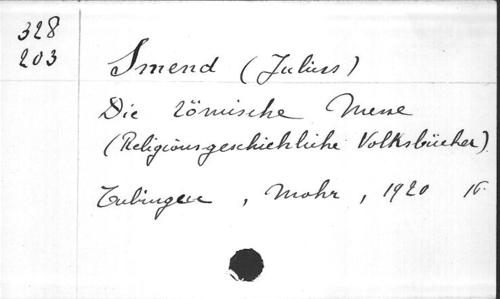 328
203
Smend (Julius)
Die römische Messe
(Religionsgeschichtliche Volksbücher)
Tubingen, Mohr, 1920